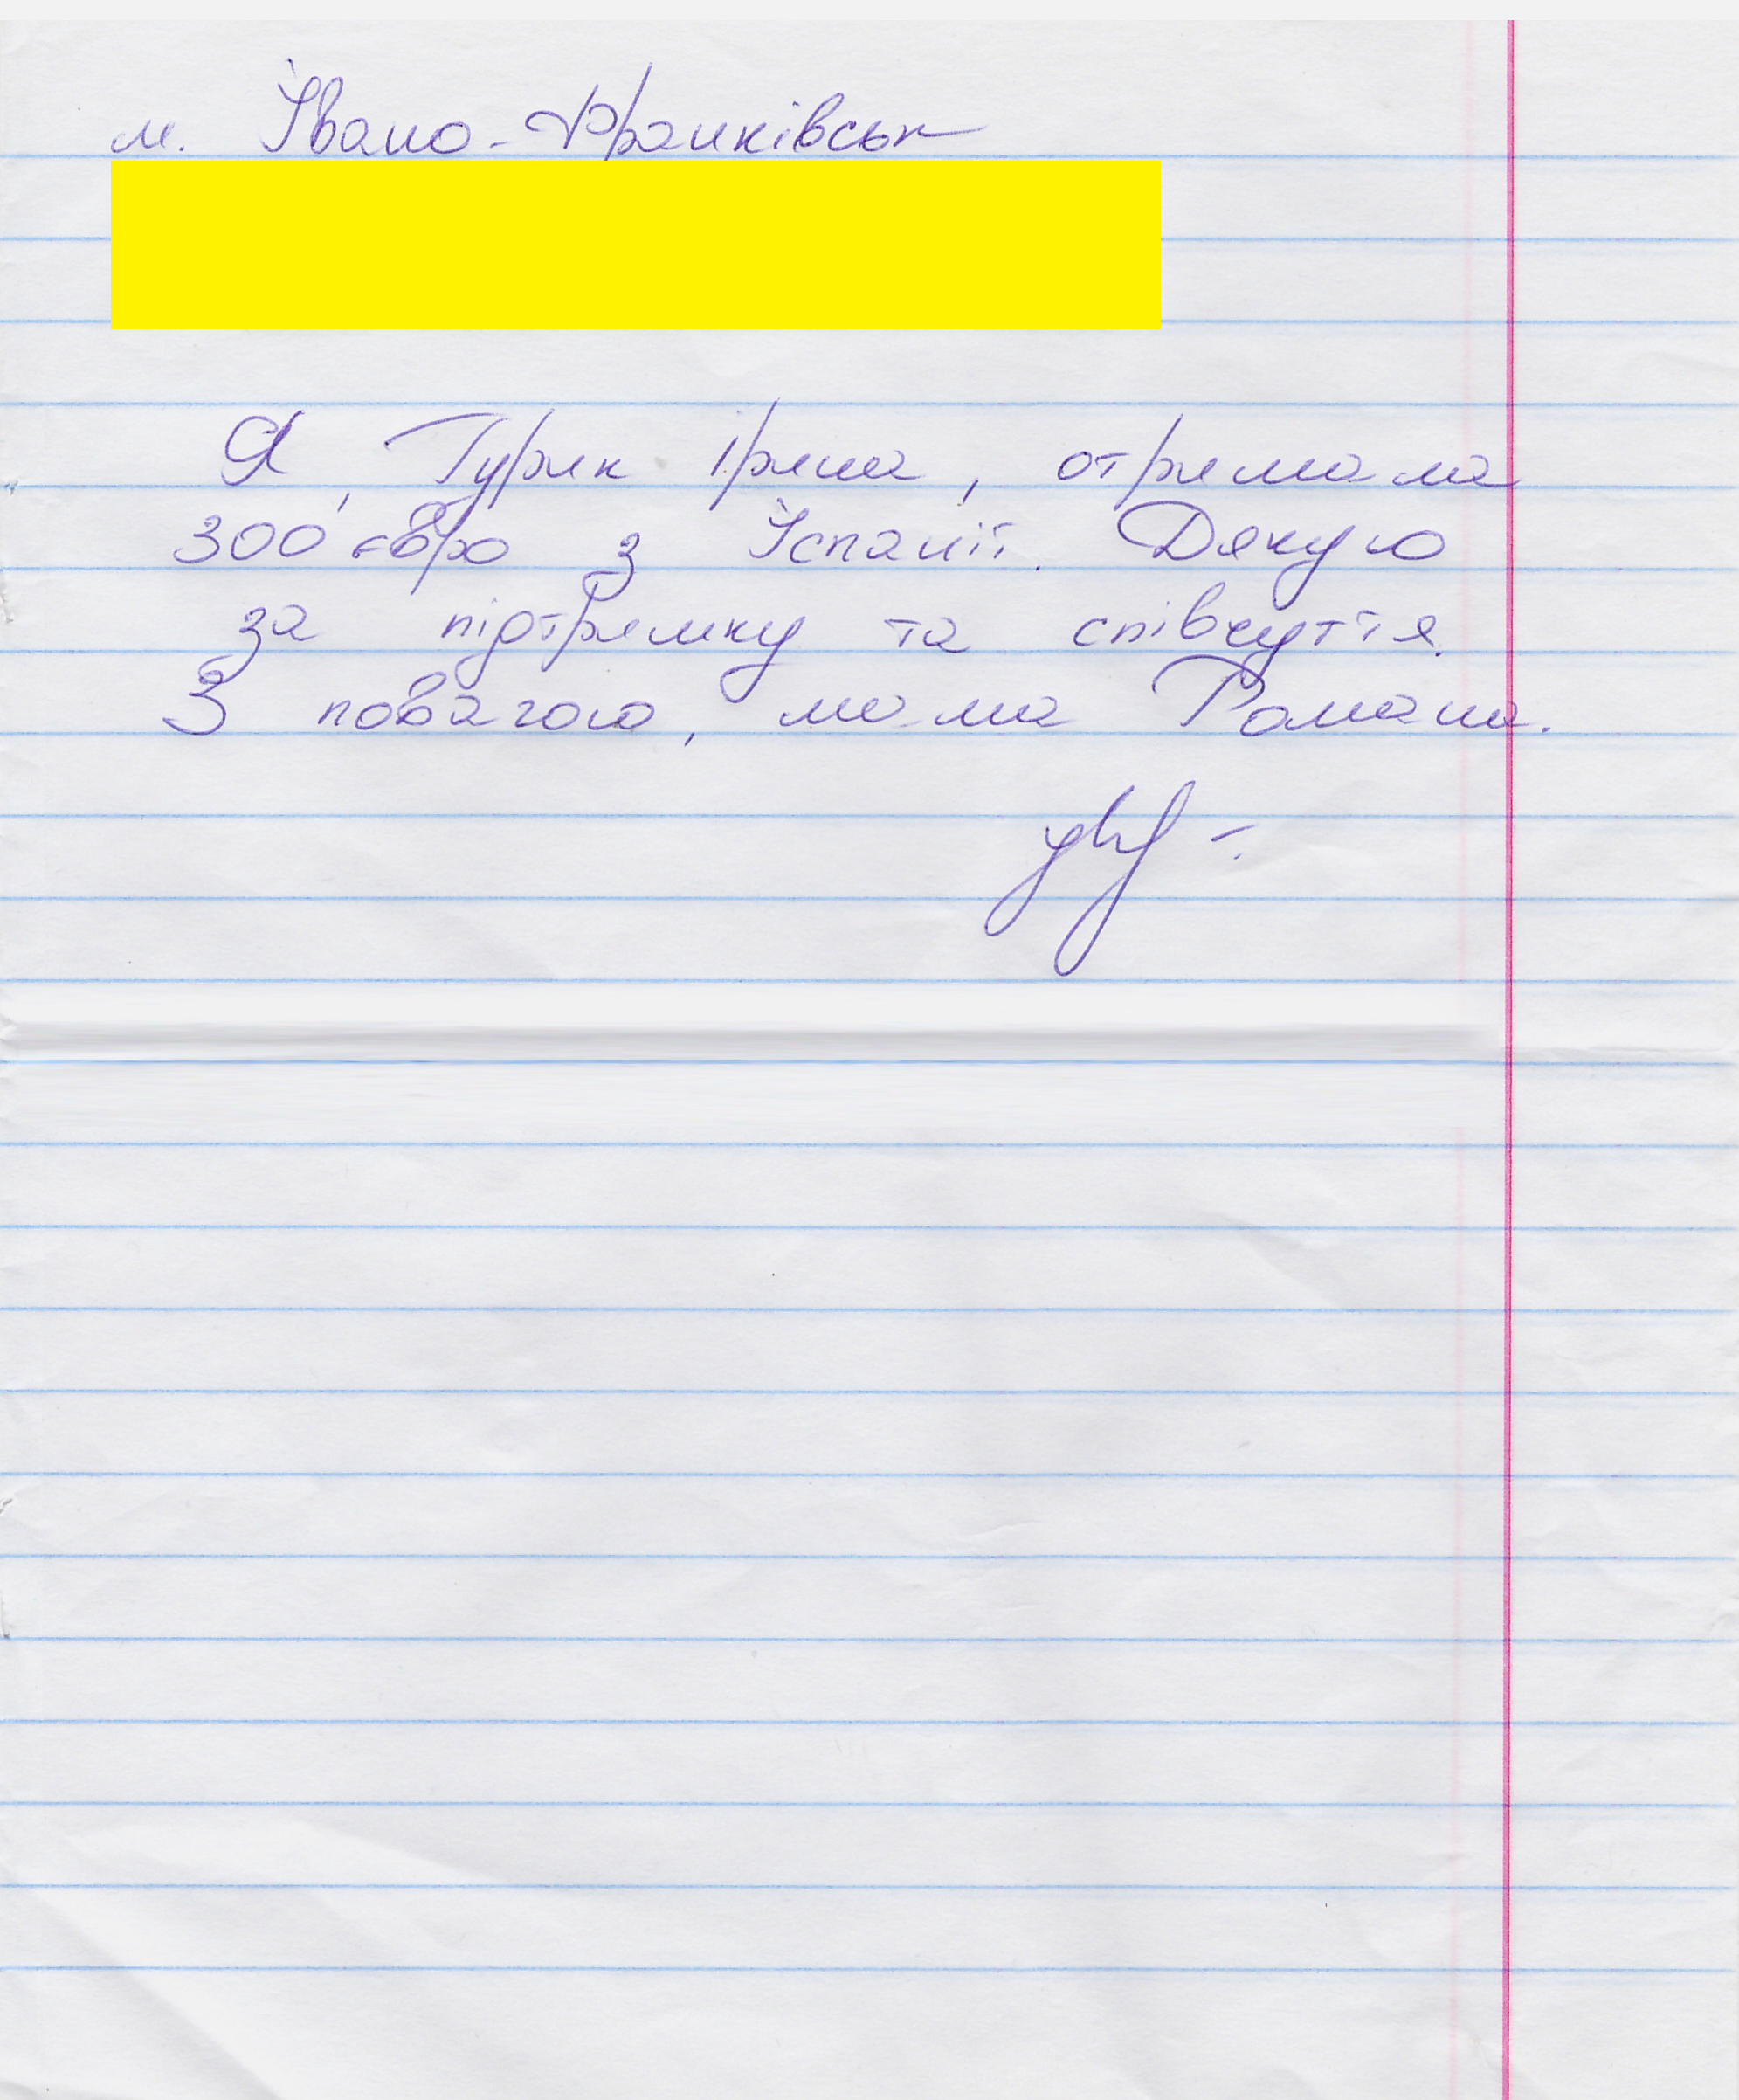 м. Івано-Франківськ
Я, Гурик Ірина, отримала
300 євро з Іспанії. Дякую
за підтримку та співчуття.
З повагою, мама Романа.